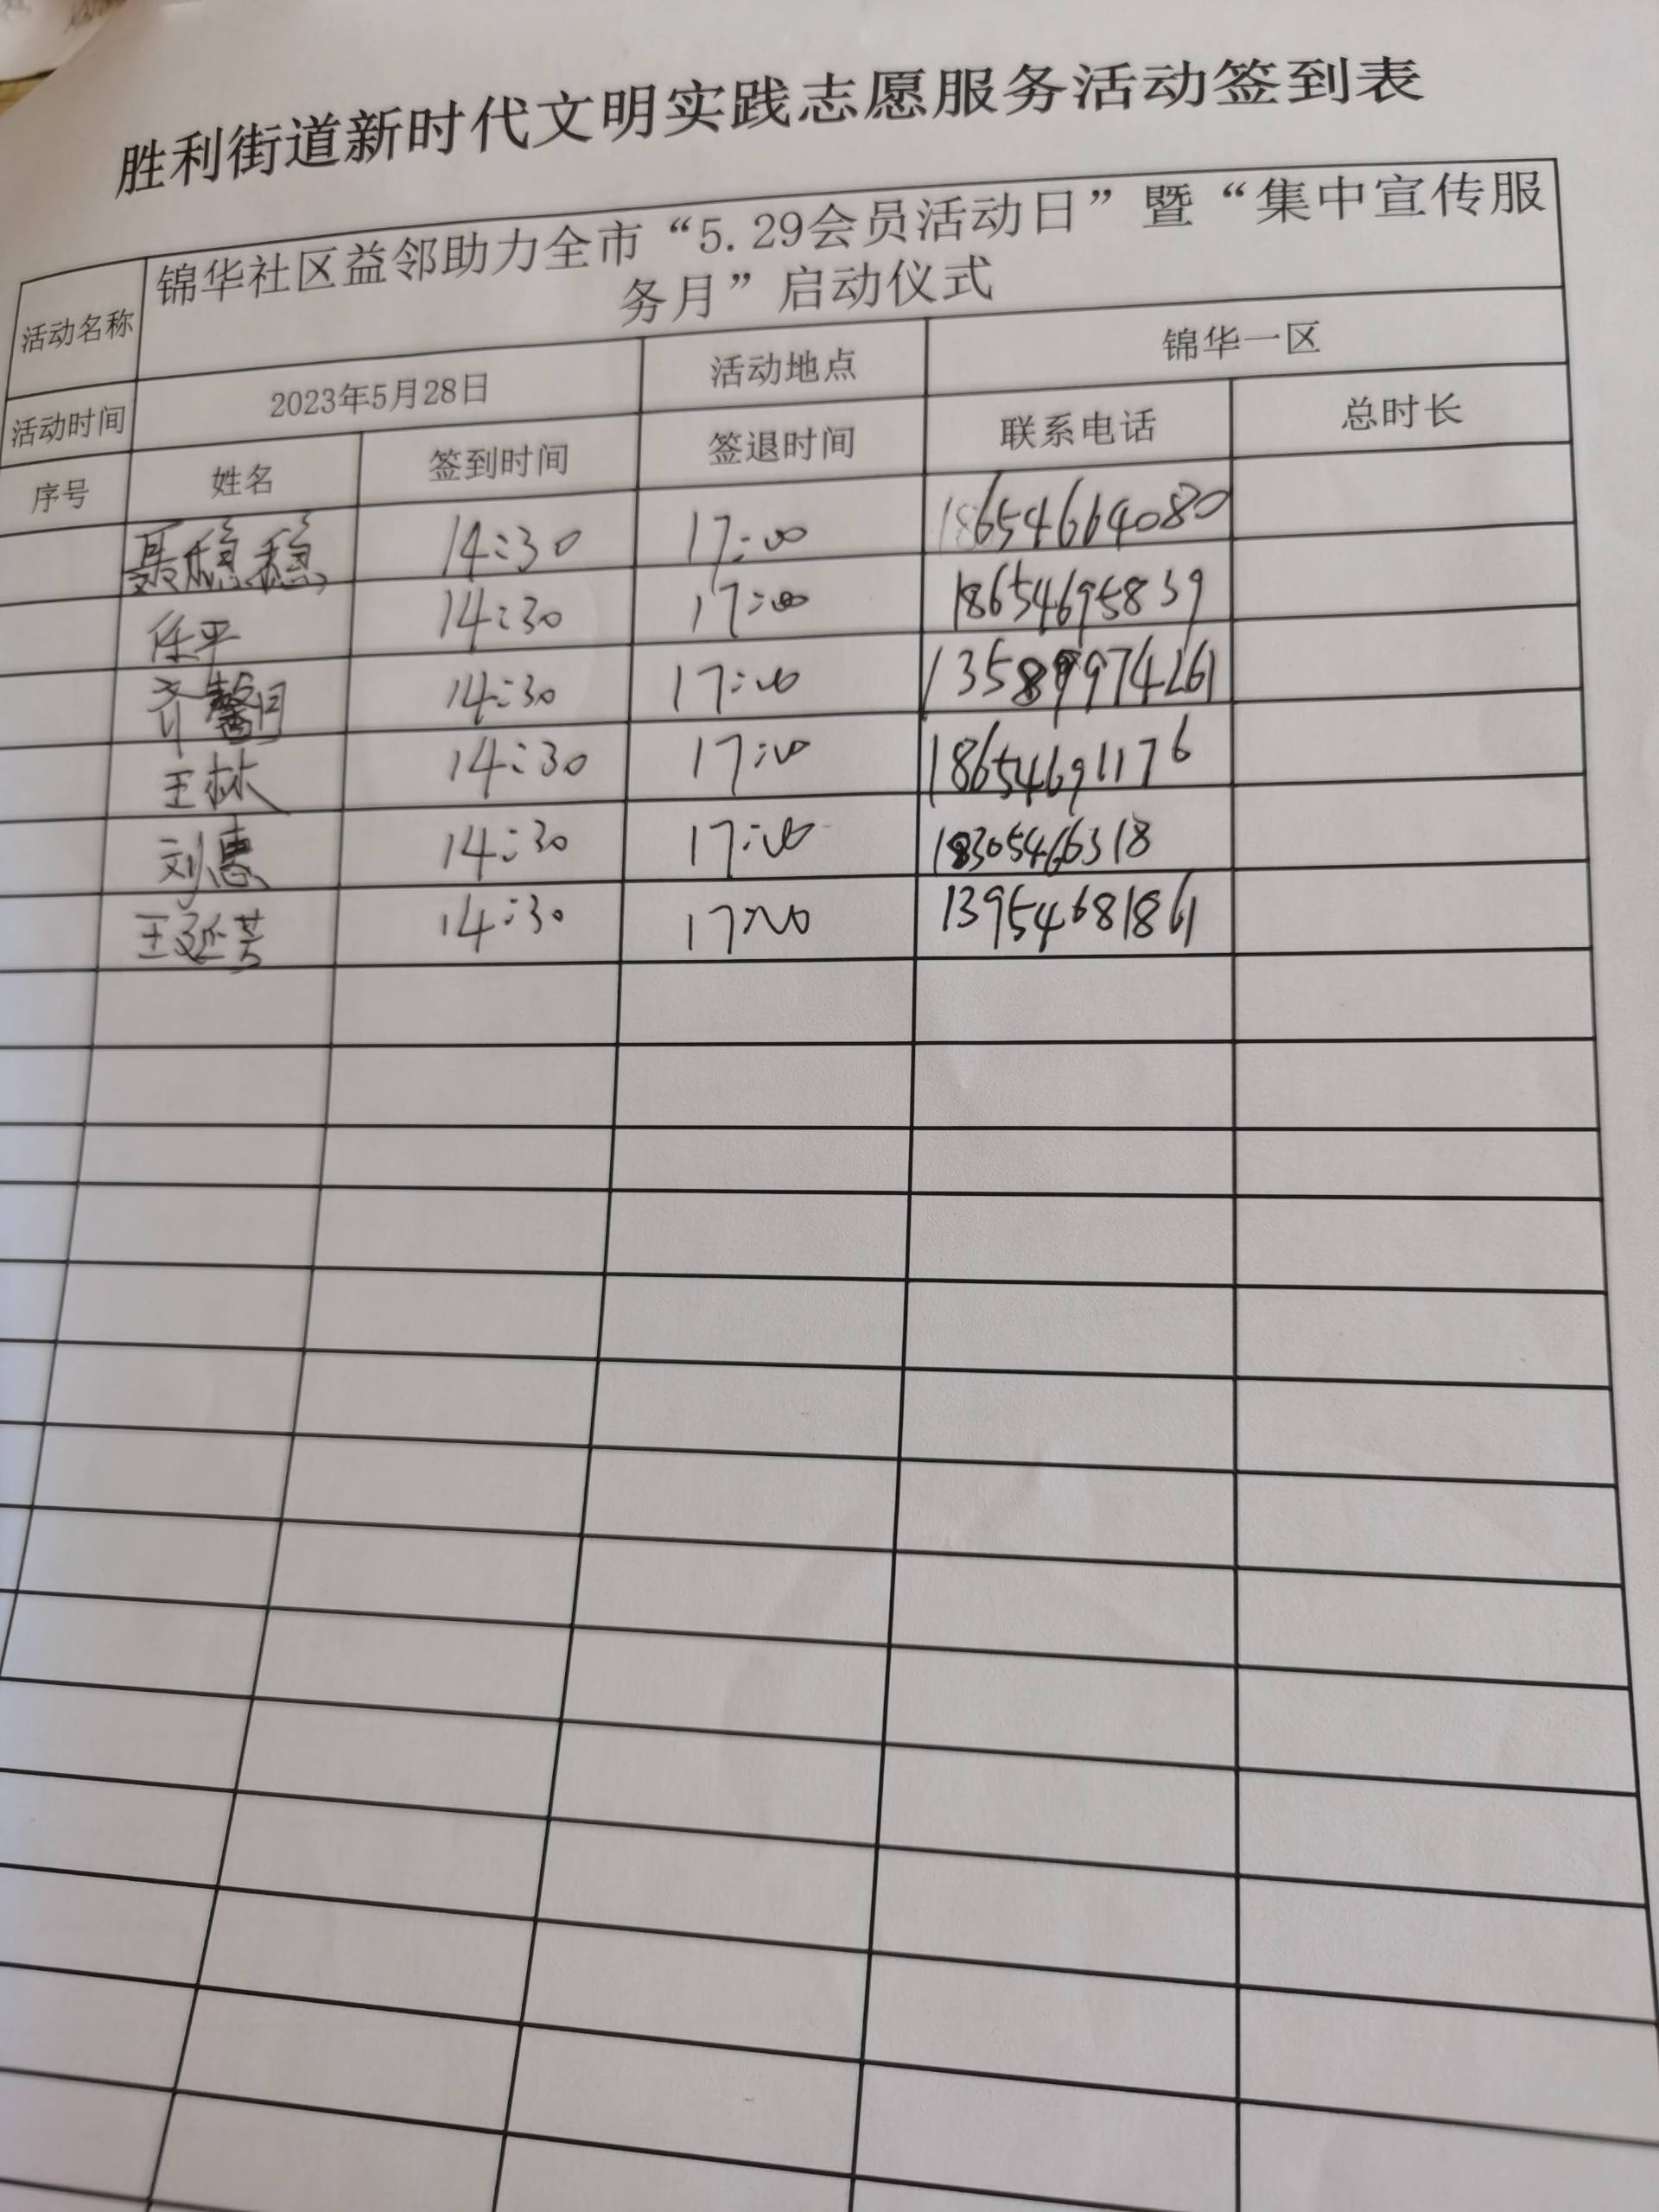 胜利街道新时代文明实践志愿服务活动签到表
活动名称 锦华社区益邻助力全市“5.29会员活动日”暨“集中宣传服
务月”启动仪式
活动时间 2023年5月28日 活动地点 锦华一区
序号 姓名 签到时间 签退时间 联系电话 总时长
聂稳稳 14:30 17:00 18654664080
任平 14:30 17:00 18654695839
齐 14:30 17:00 13589974261
王林 14:30 17:00 18654691176
刘惠 14:30 17:00 18305466318
王延芳 14:30 17:00 13954681861